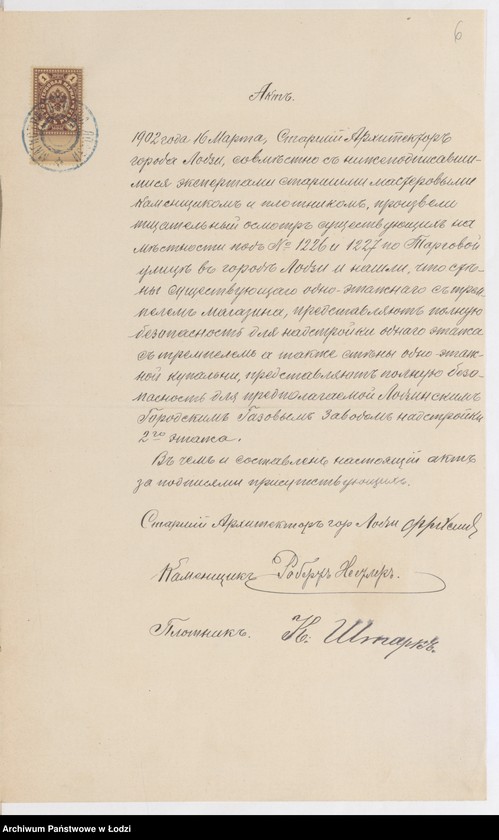 6
Актъ.
1902 года 16 Марта, Старшій Архитекторъ
города Лодзи, совмѣстно съ нижеподписавши-
мися экспертами старшими мастеровыми
каменщикомъ и плотникомъ, произвели
тщательный осмотръ существующихъ на
мѣстности подъ № 1226 и 1227 по Тарговой
улицѣ въ городѣ Лодзи и нашли, что стѣ-
ны существующаго одно-этажнаго съ трем-
пелемъ магазина, представляютъ полную
безопасность для надстройки одного этажа
съ тремпелемъ а также стѣны одно-этаж-
ной купальни, представляютъ полную безо-
пасность для предполагаемой Лодзинскимъ
Городскимъ Газовымъ Заводомъ надстройки
2го этажа.
Въ чемъ и составленъ настоящій актъ
за подписями присутствующихъ.
Старшій Архитекторъ гор Лодзи
Каменщикъ Робертъ
Плотникъ. К. Штаркъ.
Archiwum Państwowe w Łodzi